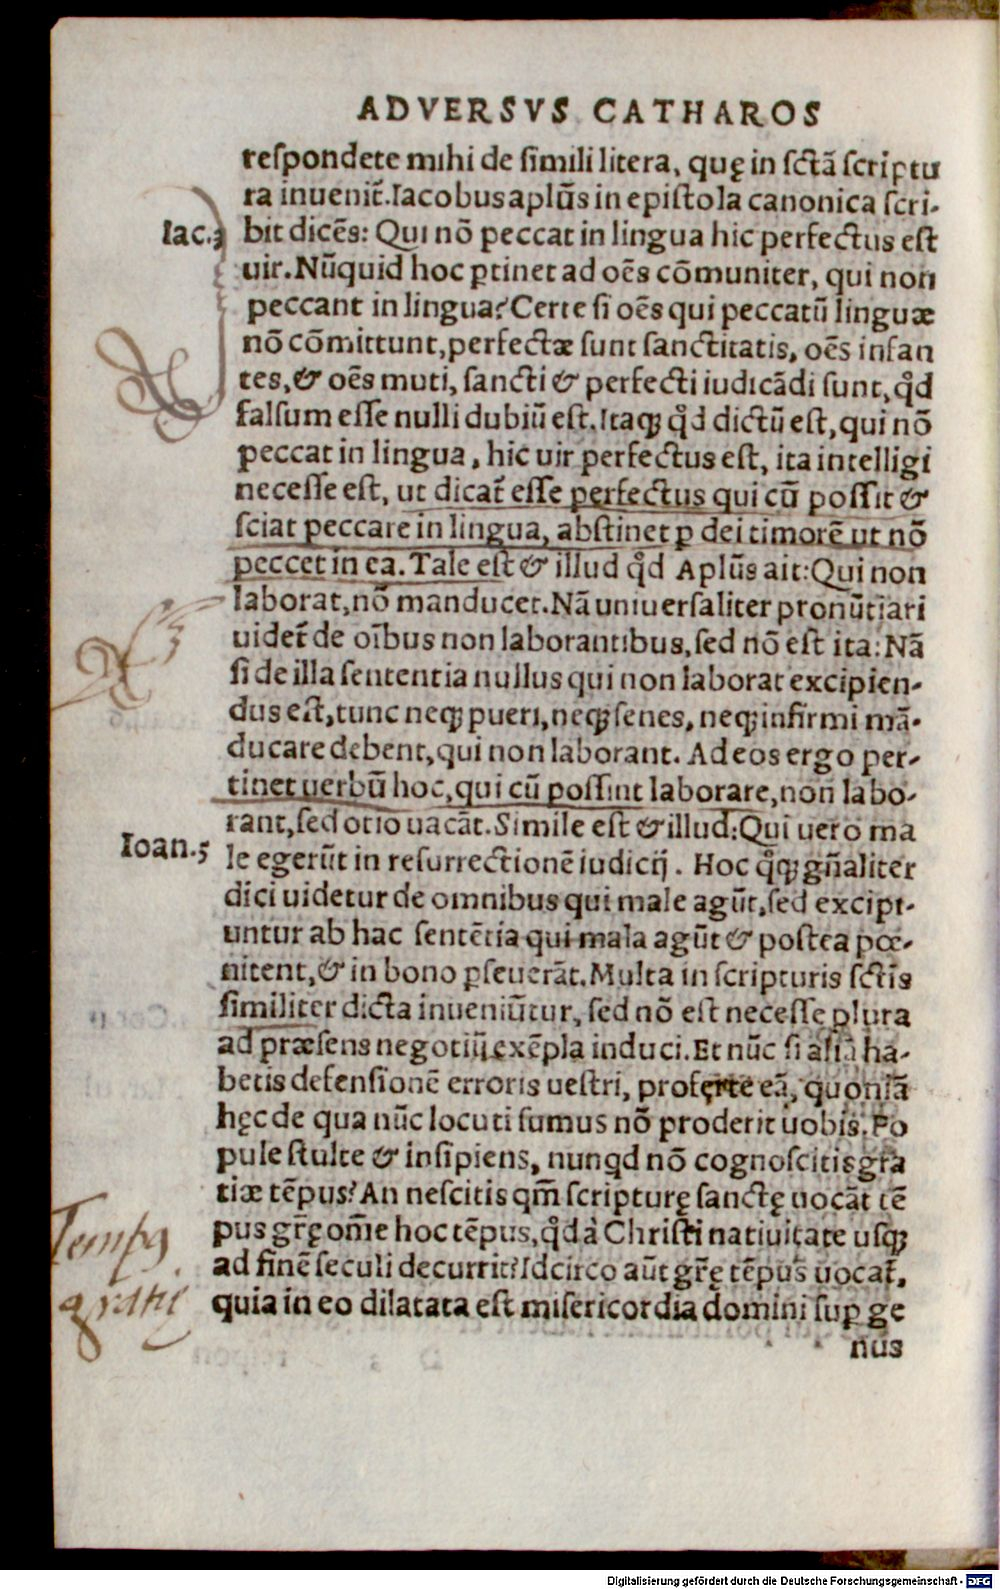 ADVERSVS CATHAROS
respondete mihi de simili litera, quę in sctã scriptu
ra inuenit̃. Iacobus aplũs in epistola canonica scri-
Iac.3
bit dicẽs: Qui nõ peccat in lingua hic perfectus est
uir. Nũquid hoc ꝑtinet ad oẽs cõmuniter, qui non
peccant in lingua? Certe si oẽs qui peccatũ linguæ
nõ cõmittunt, perfectæ sunt sanctitatis, oẽs infan
tes, & oẽs muti, sancti & perfecti iudicãdi sunt, qd̊
falsum esse nulli dubiũ est. Itaqꝫ qd̊ dictũ est, qui nõ
peccat in lingua, hic uir perfectus est, ita intelligi
necesse est, ut dicat̃ esse perfectus qui cũ possit &
sciat peccare in lingua, abstinet ꝑ dei timorẽ ut nõ
peccet in ea. Tale est & illud qd̊ Aplũs ait: Qui non
laborat, nõ manducet. Nã uniuersaliter pronũtiari
uidet̃ de oĩbus non laborantibus, sed nõ est ita: Nã
si de illa sententia nullus qui non laborat excipien-
dus est, tunc neqꝫ pueri, neqꝫ senes, neqꝫ infirmi mã-
ducare debent, qui non laborant. Ad eos ergo per-
tinet uerbũ hoc, qui cũ possint laborare, non labo-
rant, sed otio uacãt. Simile est & illud: Qui uero ma
Ioan.5
le egerũt in resurrectionẽ iudicij. Hoc qq̊ꝫ gñaliter
dici uidetur de omnibus qui male agũt, sed excipi-
untur ab hac sentẽtia qui mala agũt & postea pœ-
nitent, & in bono ꝑseuerãt. Multa in scripturis sctis
similiter dicta inueniũtur, sed nõ est necesse plura
ad præsens negotiũ exẽpla induci. Et nũc si aliã ha-
betis defensionẽ erroris uestri, proferte eã, quoniã
hęc de qua nũc locuti sumus nõ proderit uobis. Po
pule stulte & insipiens, nunqd nõ cognoscitis gra
tiæ tẽpus? An nescitis qm̃ scripturę sanctę uocãt tẽ
pus gr̃ę om̃e hoc tẽpus, qd̊ à Christi natiuitate usqꝫ
ad finẽ seculi decurrit? Idcirco aũt gr̃ę tẽpus uocat̃,
Tempꝰ
gratię
quia in eo dilatata est misericordia domini suꝑ ge
nus
Digitalisierung gefördert durch die Deutsche Forschungsgemeinschaft - DFG